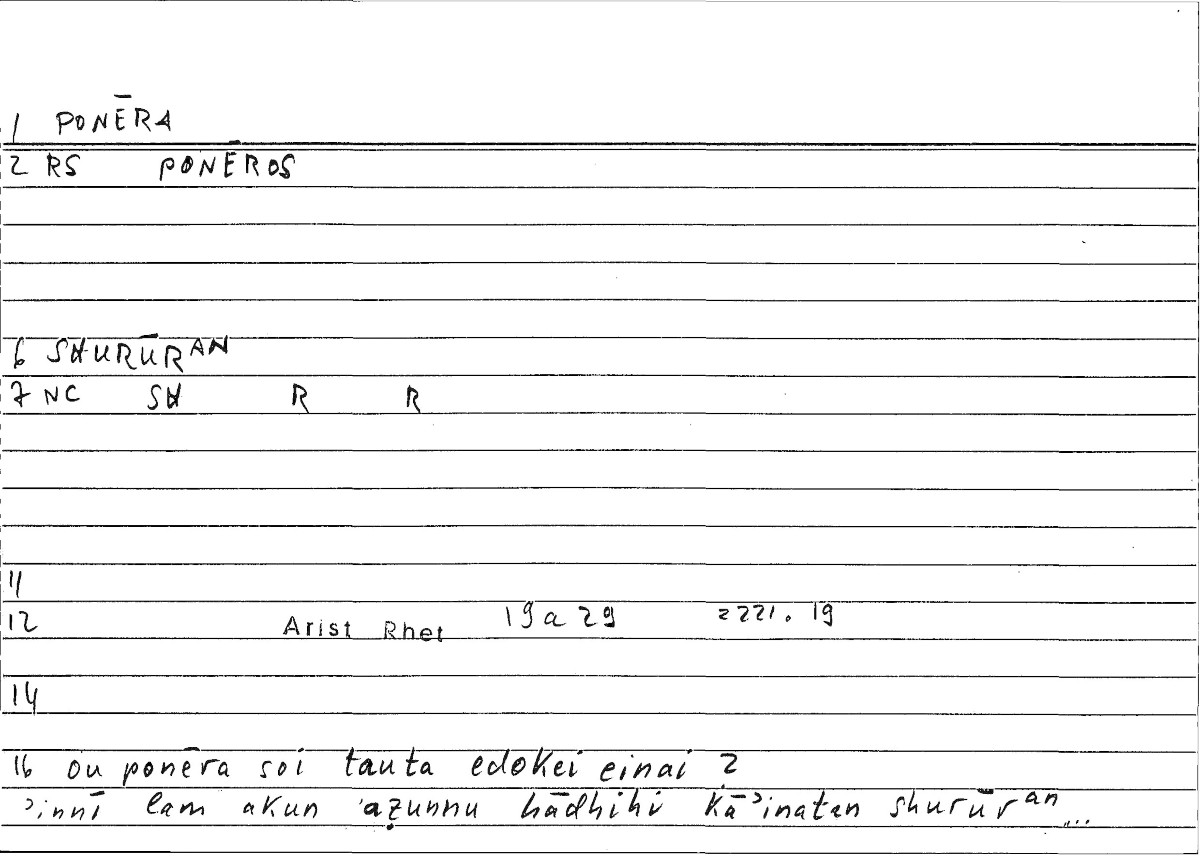 1 PONĒRA
2 RS PONĒROS
6 SHURŪRAN
7 NC SH R R
11
12 Arist Rhet 19a29 2221.19
14
16 ou ponēra soi tauta edokei einai ?
ʾinnī lam akun ʾaẓunnu hādhihi kāʾinatan shurūran ....